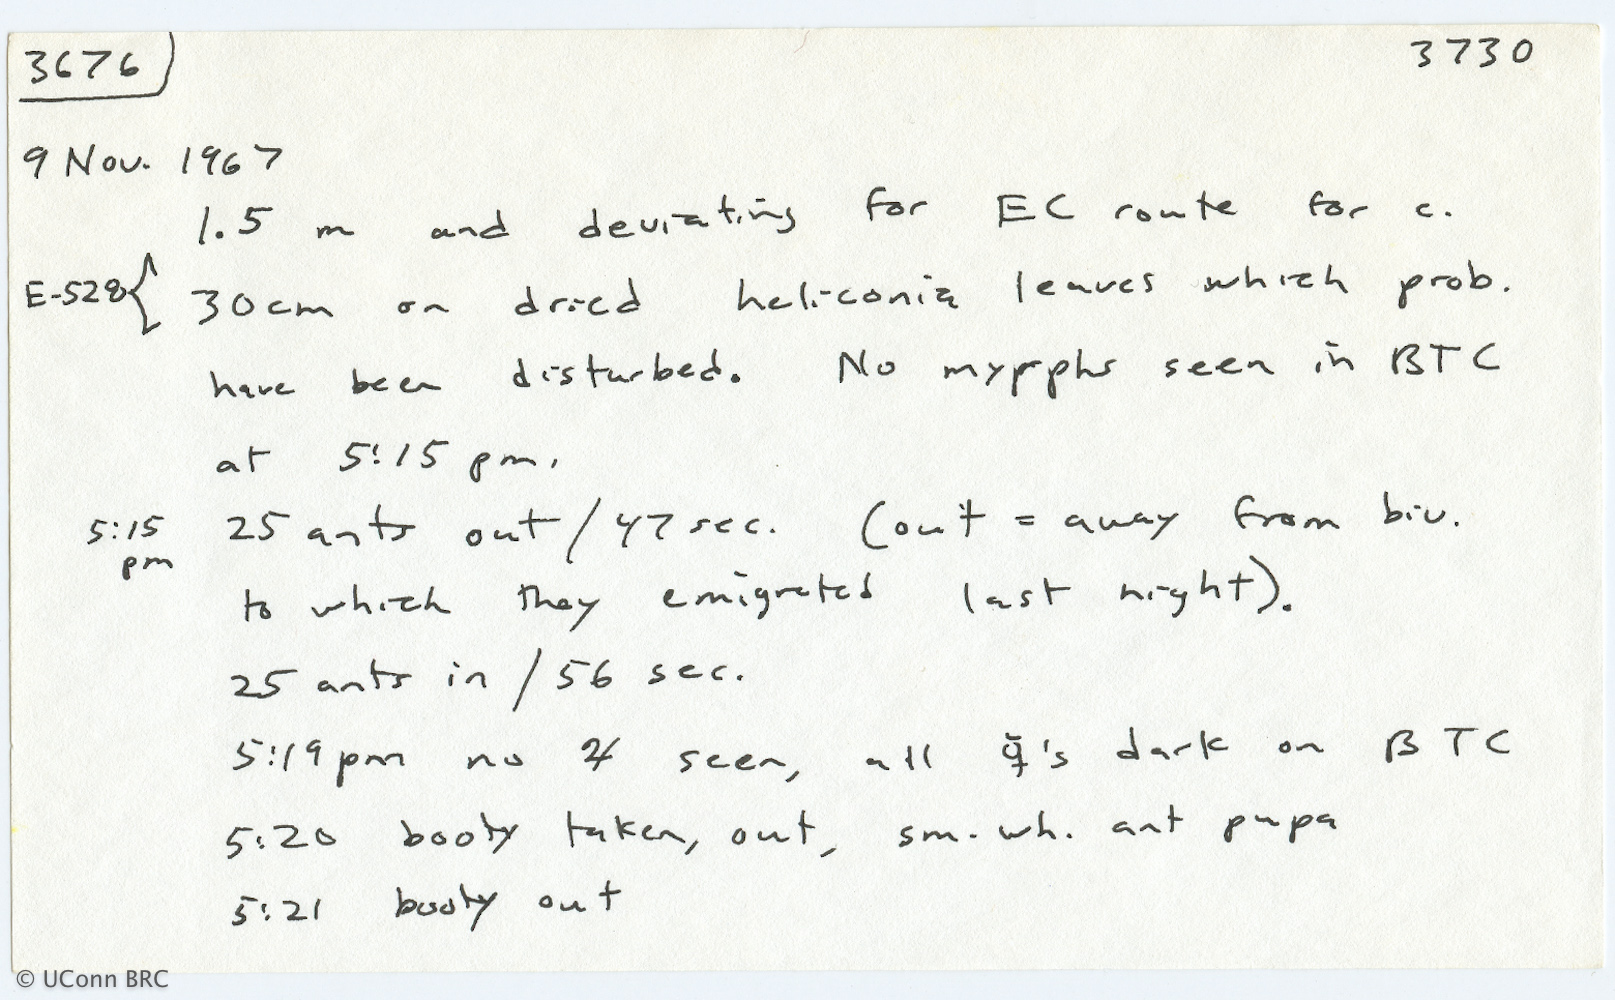 3676 3730
9 Nov. 1967
1.5 m and deviating for EC route for c.
E-528 { 30cm on dried heliconia leaves which prob.
have been disturbed. No myrphs seen in BTC
at 5:15 pm.
5:15 pm 25 ants out / 47 sec. (out = away from biv.
to which they emigrated last night).
25 ants in / 56 sec.
5:19 pm no ♃ seen, all ☿̆'s dark on BTC
5:20 booty taken, out, sm. wh. ant pupa
5:21 booty out
© UConn BRC